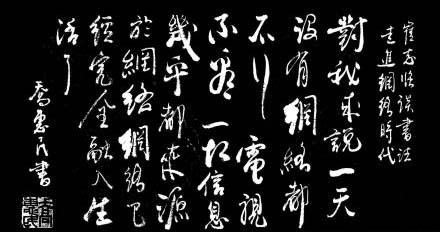 書法
走進網絡時代
對我來說一天
沒有網絡都
不行電視
不看一切信息
幾乎都來源
於網絡網絡已
經完全融入生
活了
喬惠民書